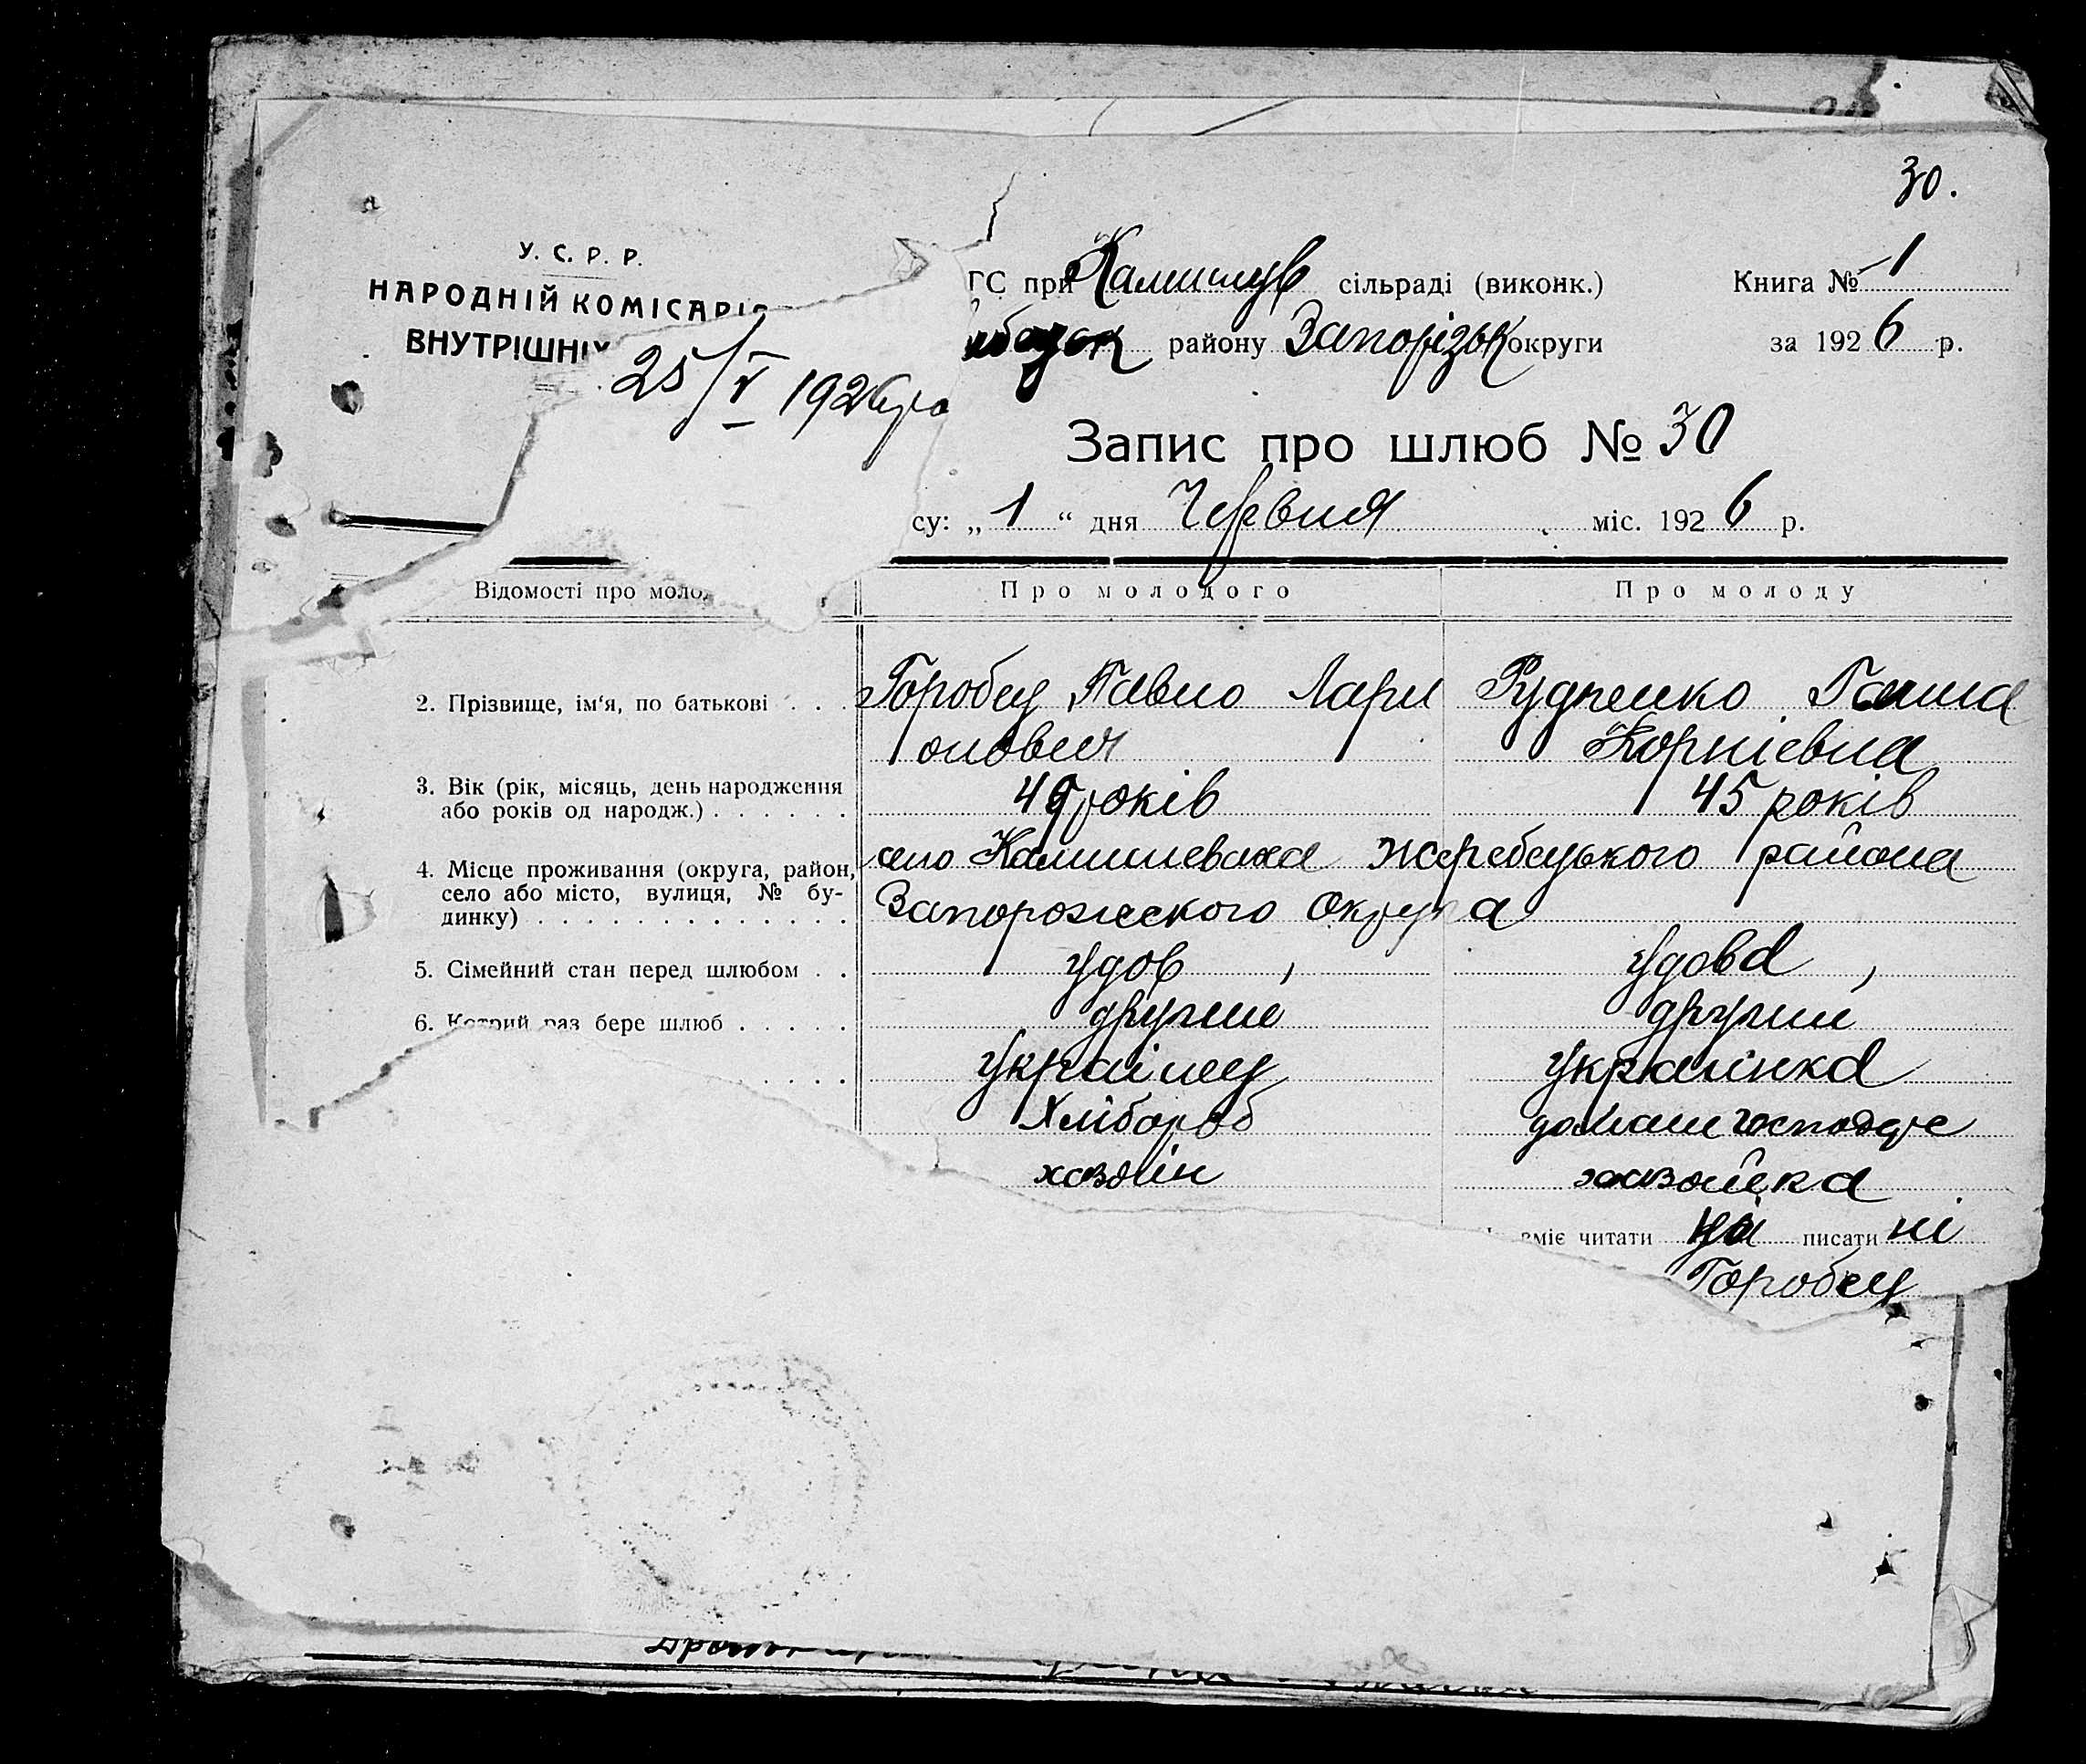 30.
У. С. Р. Р.
НАРОДНІЙ КОМІСАРІ
ВНУТРІШНІХ
25/V 1926 ро
ГС при Камишув сільраді (виконк.) Книга № 1
району Запорізьк округи за 1926 р.
Запис про шлюб № 30
су: „ 1 “ дня Червня міс. 1926 р.
Відомості про моло Про молодого Про молоду
2. Прізвище, ім‘я, по батькові . . . Горобец Павло Лари Руденко Ганна
онович Корніевна
3. Вік (рік, місяць, день народження
або років од народж.) . . . . . . 49 років 45 років
4. Місце проживання (округа, район, село Камишеваха Жеребецького района
село або місто, вулиця, № бу-
динку) . . . . . . . . . . . . . Запорожского Округа
5. Сімейний стан перед шлюбом . . удов, удова,
6. Котрий раз бере шлюб . . . . . другий другий
. . . . українец українка
Хлібороб домашн господр
хазяін хазяйка
вміє читати ні писати ні
Горобец